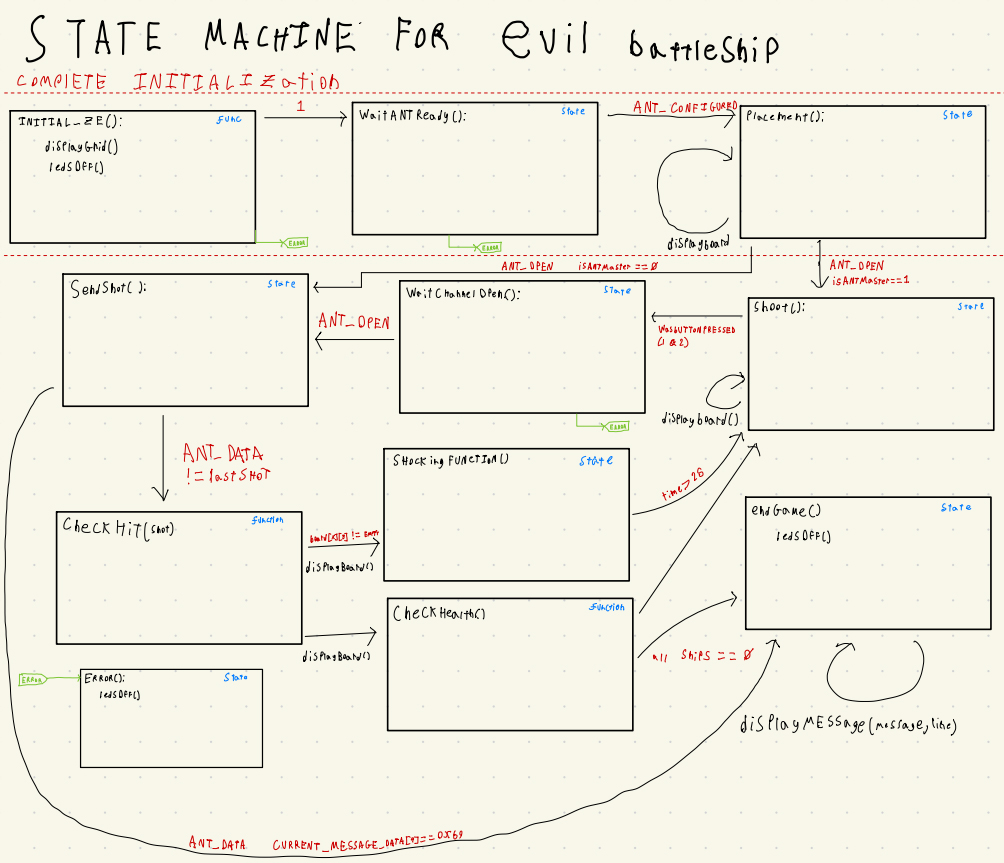 STATE MACHINE FOR evil battleship
COMPLETE INITIALIZation
INITIAL_ZE():
func
displayGrid()
ledsOFF()
1
WaitANTReady():
State
ANT_CONFIGURED
Placement():
State
displayboard
ERROR
ERROR
ANT_OPEN isANTMaster==0
ANT_OPEN
isANTMaster==1
SendShot():
State
ANT_OPEN
WaitChannelOpen():
State
WasBUTTONPRESSED
(1 & 2)
Shoot():
State
displayboard()
ERROR
ANT_DATA
!=lastSHOT
SHOCKingFUNCTION()
State
time>26
CheckHIT(shot)
function
!= EMPTY
displayBoard()
endGame()
State
ledsOFF()
CheckHealth()
function
displayBoard()
all ships == 0
ERROR
ERROR():
State
ledsOFF()
displayMESSage(message,line)
ANT_DATA CURRENT_MESSAGE_DATA[4]==0x69